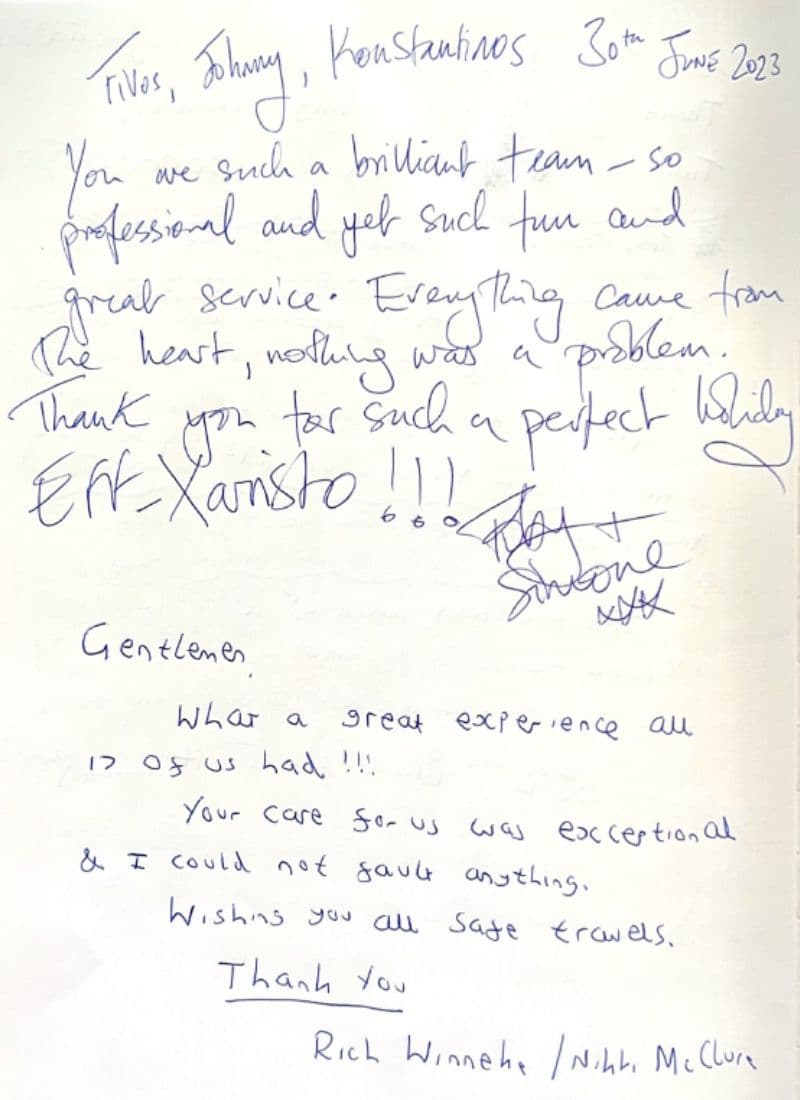 Trivos, Johnny, Konstantinos 30th JUNE 2023
You are such a brilliant team - so
professional and yet such fun and
great service. Everything came from
the heart, nothing was a problem.
Thank you for such a perfect holiday
Eff-Xaristo !!!
+
Simone
xxx
Gentlemen,
What a great experience all
17 of us had !!!
Your care for us was exceptional
& I could not fault anything.
Wishing you all safe travels.
Thank You
Rich Winneke / Nikki McClure